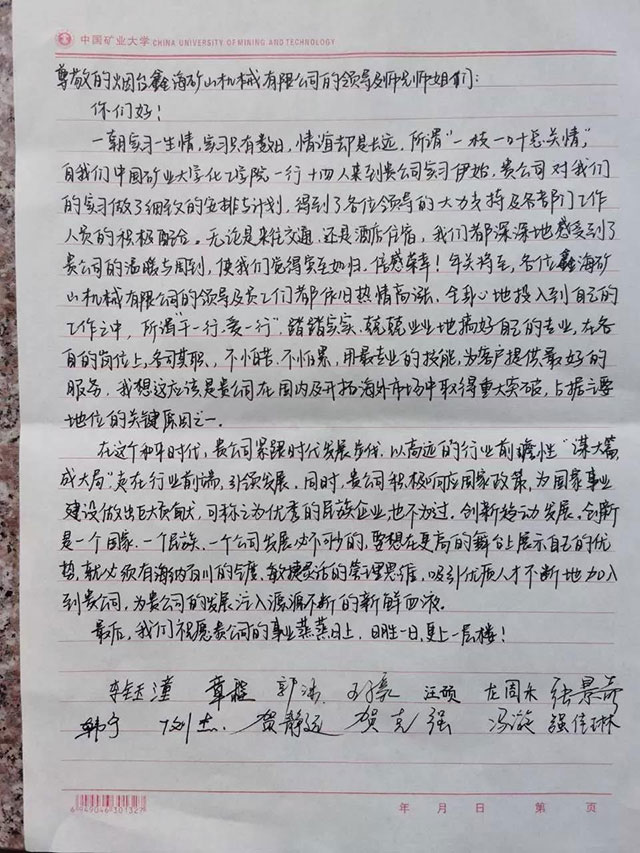 中国矿业大学 CHINA UNIVERSITY OF MINING AND TECHNOLOGY
尊敬的烟台鑫海矿山机械有限公司的领导及师兄师姐们:
你们好!
一朝实习一生情,实习只有数日,情谊却是长远,所谓"一枝一叶总关情",
自我们中国矿业大学化工学院一行十四人来到贵公司实习伊始,贵公司对我们
的实习做了细致的安排与计划,得到了各位领导的大力支持及各部门工作
人员的积极配合。无论是来往交通,还是酒店住宿,我们都深深地感受到了
贵公司的温暖与周到,使我们觉得宾至如归,倍感荣幸!年关将至,各位鑫海矿
山机械有限公司的领导及员工们都依旧热情高涨,全身心地投入到自己的
工作之中,所谓"干一行,爱一行",踏踏实实、兢兢业业地搞好自己的专业,在各
自的岗位上,各司其职,不怕苦、不怕累,用最专业的技能,为客户提供最好的
服务,我想这应该是贵公司在国内及开拓海外市场中取得重大突破,占据主要
地位的关键原因之一。
在这个和平时代,贵公司紧跟时代发展步伐,以高远的行业前瞻性"谋大篇,
成大局"走在行业前端,引领发展。同时,贵公司积极响应国家政策,为国家事业
建设做出巨大贡献,可称之为优秀的民族企业也不为过。创新驱动发展,创新
是一个国家、一个民族、一个公司发展必不可少的,要想在更高的舞台上展示自己的优
势,就必须有海纳百川的气度、敏捷灵活的管理思维,吸引优质人才不断地加入
到贵公司,为贵公司的发展注入源源不断的新鲜血液。
最后,我们祝愿贵公司的事业蒸蒸日上,日胜一日,更上一层楼!
李钰潼 章程 郭涛 汪硕 左周永 张景奇
韩宁 刘杰 贺静远 贺克强 冯漩 强佳琳
6 949046 301327
年 月 日 第 页